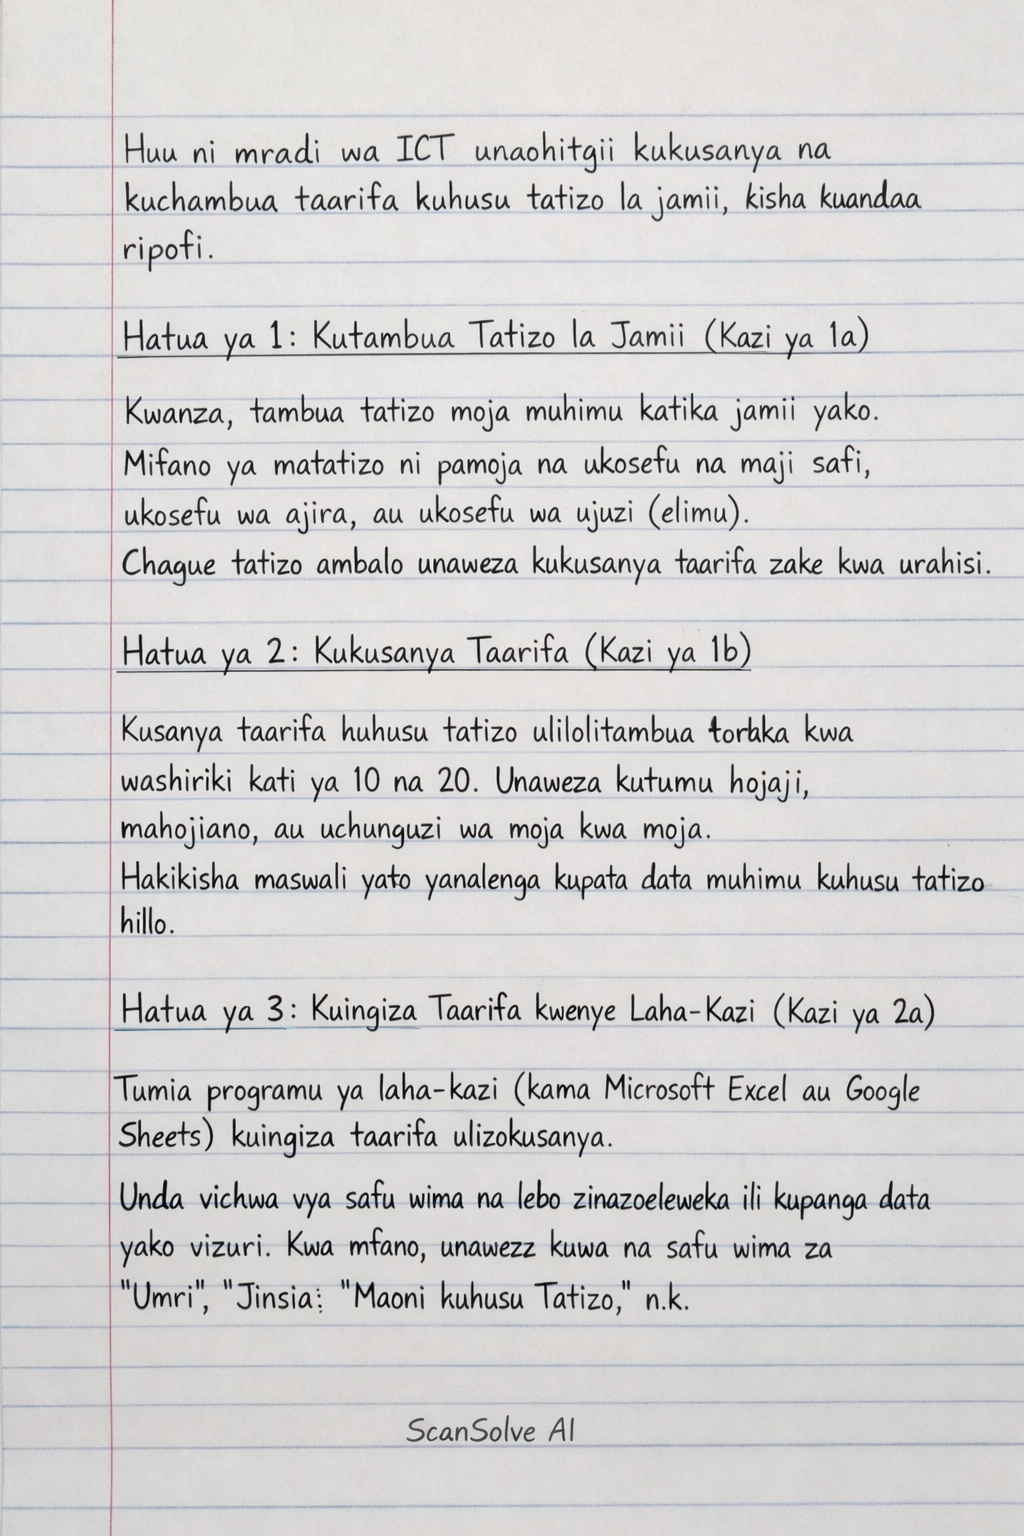 Huu ni mradi wa ICT unaohitgii kukusanya na
kuchambua taarifa kuhusu tatizo la jamii, kisha kuandaa
ripofi.
Hatua ya 1: Kutambua Tatizo la Jamii (Kazi ya 1a)
Kwanza, tambua tatizo moja muhimu katika jamii yako.
Mifano ya matatizo ni pamoja na ukosefu na maji safi,
ukosefu wa ajira, au ukosefu wa ujuzi (elimu).
Chague tatizo ambalo unaweza kukusanya taarifa zake kwa urahisi.
Hatua ya 2: Kukusanya Taarifa (Kazi ya 1b)
Kusanya taarifa huhusu tatizo ulilolitambua kwa
washiriki kati ya 10 na 20. Unaweza kutumu hojaji,
mahojiano, au uchunguzi wa moja kwa moja.
Hakikisha maswali yato yanalenga kupata data muhimu kuhusu tatizo
hillo.
Hatua ya 3: Kuingiza Taarifa kwenye Laha-Kazi (Kazi ya 2a)
Tumia programu ya laha-kazi (kama Microsoft Excel au Google
Sheets) kuingiza taarifa ulizokusanya.
Unda vichwa vya safu wima na lebo zinazoeleweka ili kupanga data
yako vizuri. Kwa mfano, unawezz kuwa na safu wima za
"Umri", "Jinsia: "Maoni kuhusu Tatizo," n.k.
ScanSolve AI